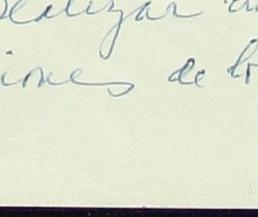 realizar
iones de lo